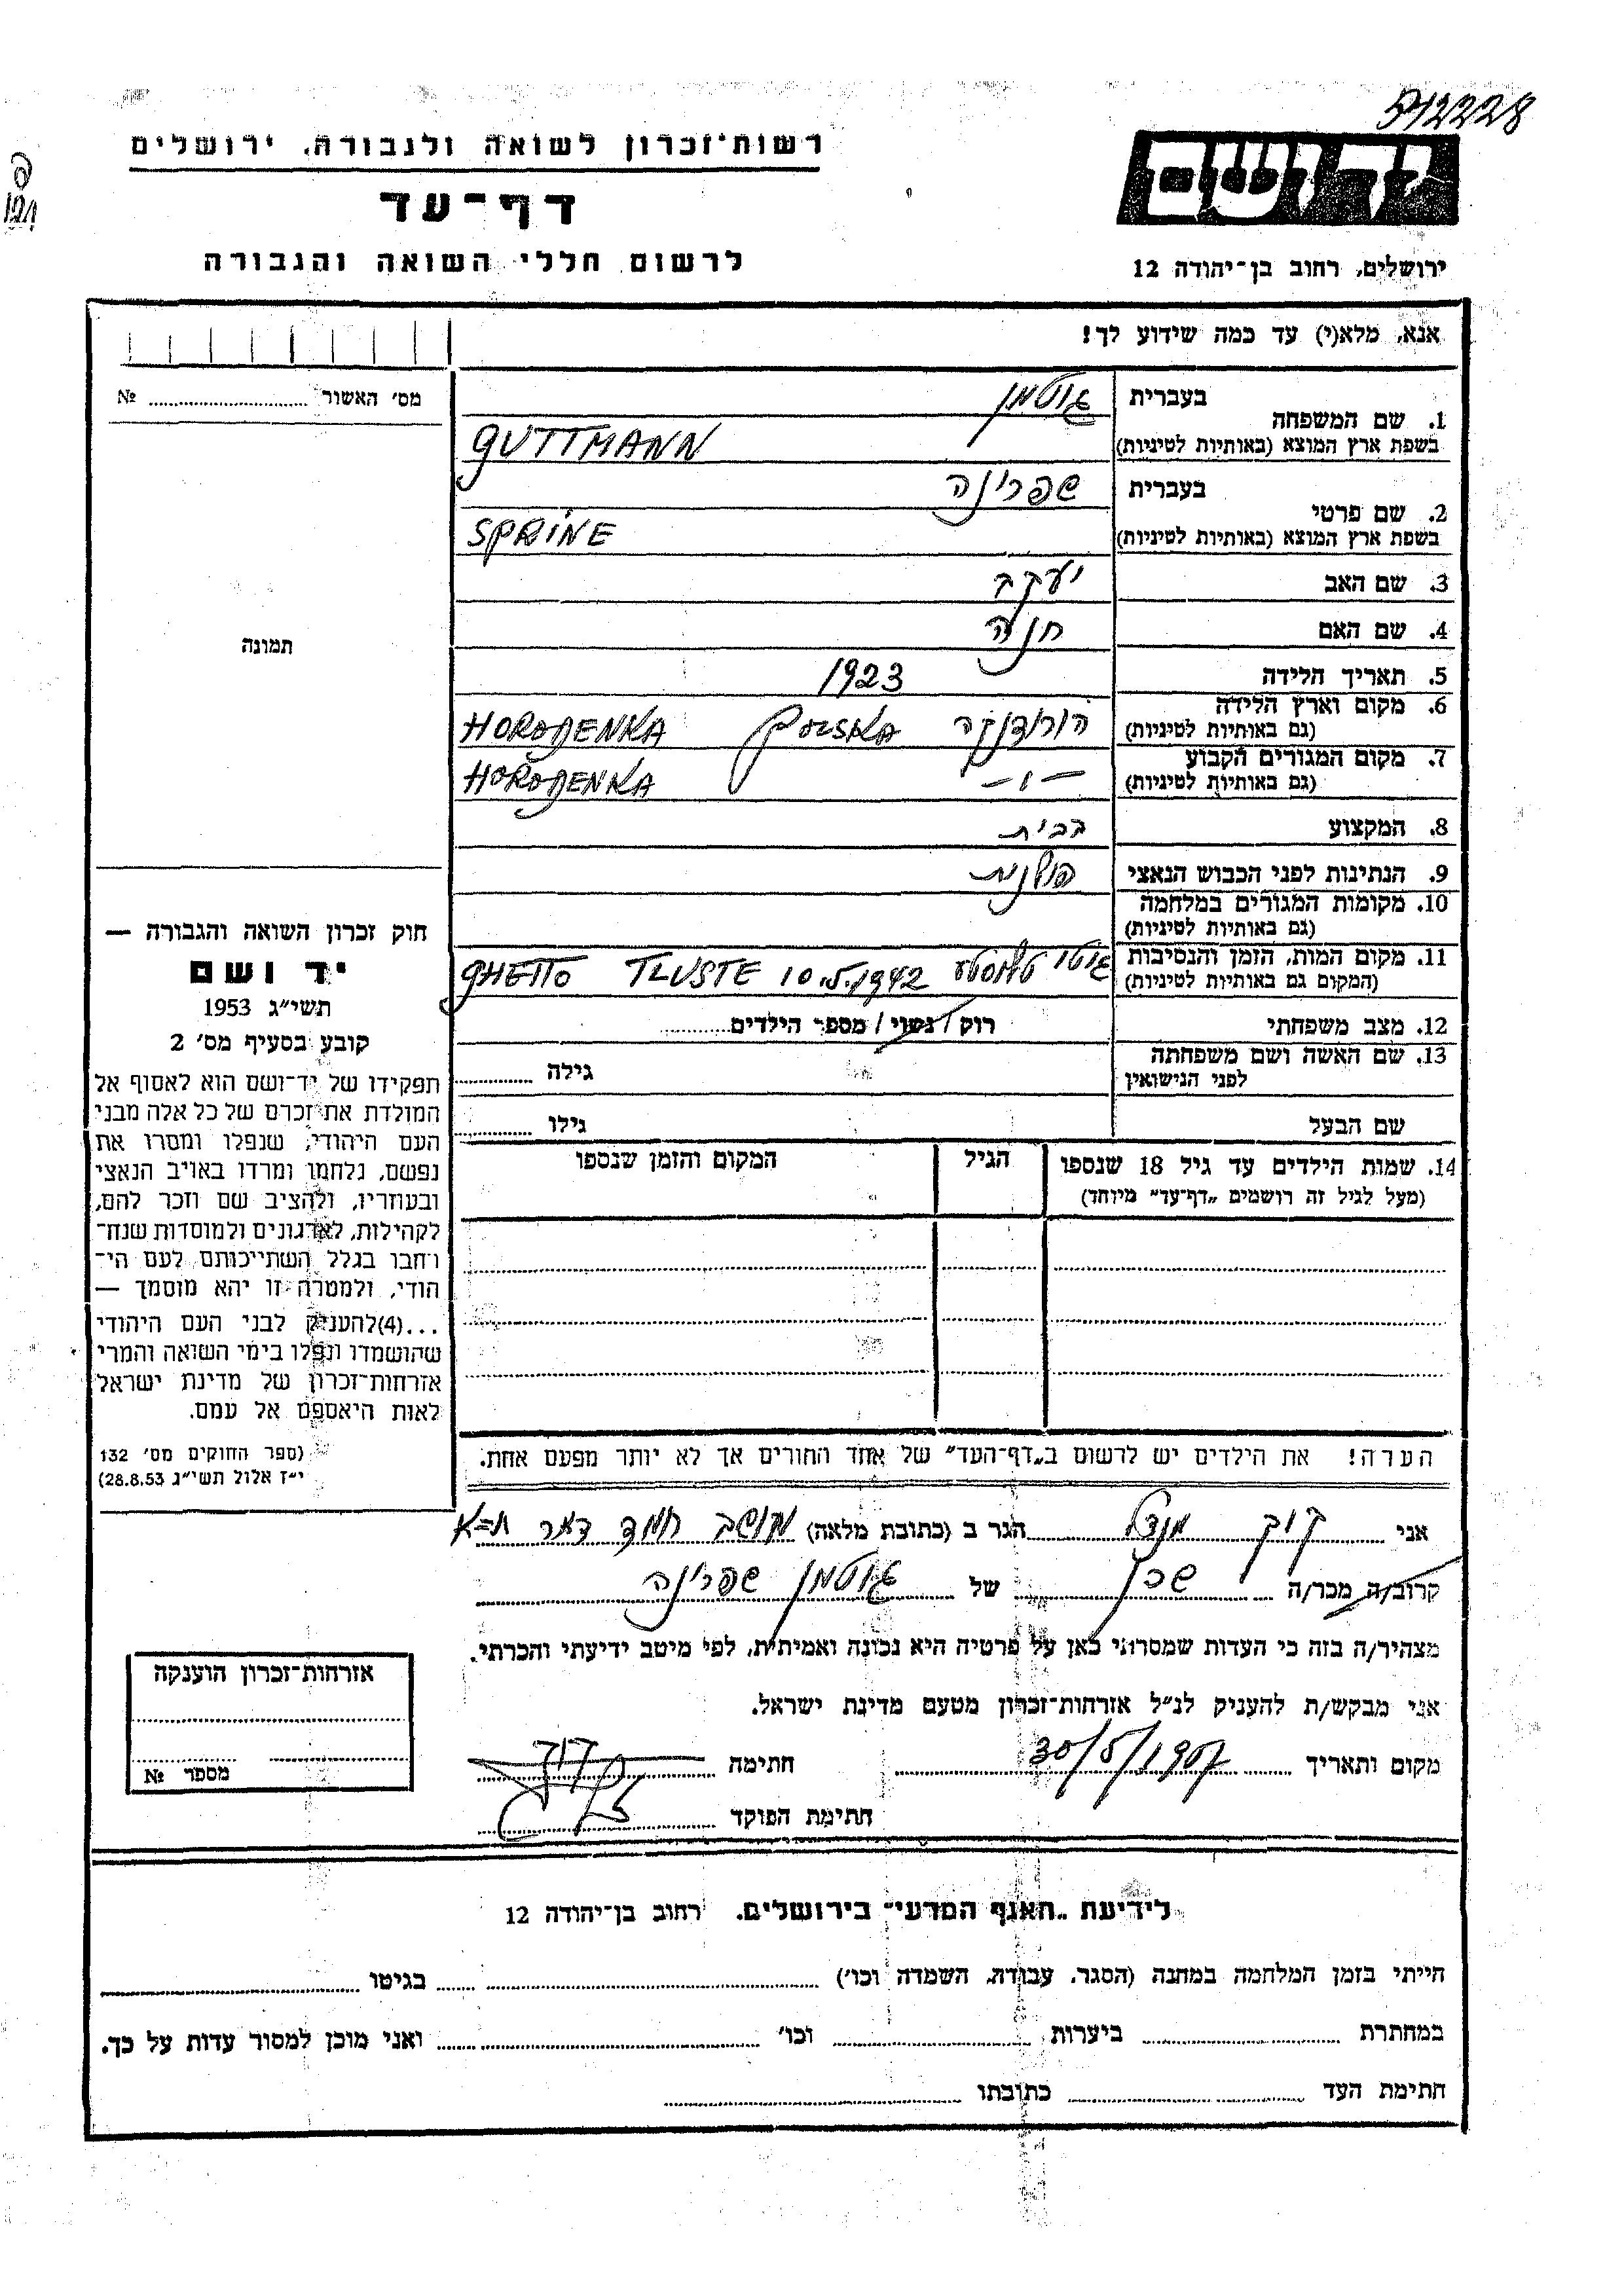 512228
רשות־זכרון לשואה ולגבורה, ירושלים
יד ושם
דף־עד
לרשום חללי השואה והגבורה
ירושלים, רחוב בן־יהודה 12
אנא, מלא(י) עד כמה שידוע לך!
מס׳ האשור № 
1. שם המשפחה בעברית גוטמן
בשפת ארץ המוצא (באותיות לטיניות) GUTTMANN
2. שם פרטי בעברית שפרינה
בשפת ארץ המוצא (באותיות לטיניות) SPRINE
3. שם האב יעקב
4. שם האם חנה
תמונה
5. תאריך הלידה 1923
6. מקום וארץ הלידה (גם באותיות לטיניות) הורודנקה POLSKA HORODENKA
7. מקום המגורים הקבוע (גם באותיות לטיניות) –״– HORODENKA
8. המקצוע בבית
9. הנתינות לפני הכבוש הנאצי פולנית
10. מקומות המגורים במלחמה (גם באותיות לטיניות)
11. מקום המות, הזמן והנסיבות (המקום גם באותיות לטיניות) גיטו טלוסטע GHETTO TLUSTE 10.5.1942
12. מצב משפחתי רוק / נשוי / מספר הילדים
13. שם האשה ושם משפחתה לפני הנישואין גילה
שם הבעל גילו
14. שמות הילדים עד גיל 18 שנספו (מעל לגיל זה רושמים „דף־עד״ מיוחד) הגיל המקום והזמן שנספו
חוק זכרון השואה והגבורה —
יד ושם
תשי״ג 1953
קובע בסעיף מס׳ 2
תפקידו של יד־ושם הוא לאסוף אל
המולדת את זכרם של כל אלה מבני
העם היהודי, שנפלו ומסרו את
נפשם, נלחמו ומרדו באויב הנאצי
ובעוזריו, ולהציב שם וזכר להם,
לקהילות, לארגונים ולמוסדות שנח־
רבו בגלל השתייכותם לעם הי־
הודי, ולמטרה זו יהא מוסמך —
...(4) להעניק לבני העם היהודי
שהושמדו ונפלו בימי השואה והמרי
אזרחות־זכרון של מדינת ישראל
לאות היאספם אל עמם.
(ספר החוקים מס׳ 132
י״ז אלול תשי״ג 28.8.53)
הערה! את הילדים יש לרשום ב„דף־העד״ של אחד ההורים אך לא יותר מפעם אחת.
אני קוך מנדל הגר ב (כתובת מלאה) מושב חמד דאר ת–א
קרוב/ה מכר/ה שכן של גוטמן שפרינה
מצהיר/ה בזה כי העדות שמסרתי כאן על פרטיה היא נכונה ואמיתית, לפי מיטב ידיעתי והכרתי.
אני מבקש/ת להעניק לנ״ל אזרחות־זכרון מטעם מדינת ישראל.
מקום ותאריך 30/5/1957 חתימה קוך
חתימת הפוקד
אזרחות־זכרון הוענקה
מספר №
לידיעת „האגף המדעי״ בירושלים. רחוב בן־יהודה 12
הייתי בזמן המלחמה במחנה (הסגר, עבודה, השמדה וכו׳) בגיטו
במחתרת ביערות וכו׳ ואני מוכן למסור עדות על כך.
חתימת העד כתובתו